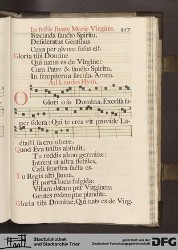 In festis Beate Marie Virginis. 257
Fecunda sancto Spiritu,
Desideratus Gentibus
Cuius per alvum fusus est.
Gloria tibi Domine
Qui natus es de Virgine:
Cum Patre & sancto Spiritu,
In sempiterna secula. Amen.
Ad Laudes Hym.
O Gloriosa Domina, Excelsa su-
per sidera: Qui te creavit provide La-
ctasti sacro ubere.
Quod Eva tristis abstulit,
Tu reddis almo germine:
Intrent ut astra flebiles,
Celi fenestra facta es.
Tu Regis alti janua,
Et porta lucis fulgida:
Vitam datam per Virginem
Gentes redempte plaudite.
Gloria tibi Domine, Qui natus es de Virg.
Stadtbibliothek
und Stadtarchiv Trier
gefördert von der
Deutschen Forschungsgemeinschaft
DFG